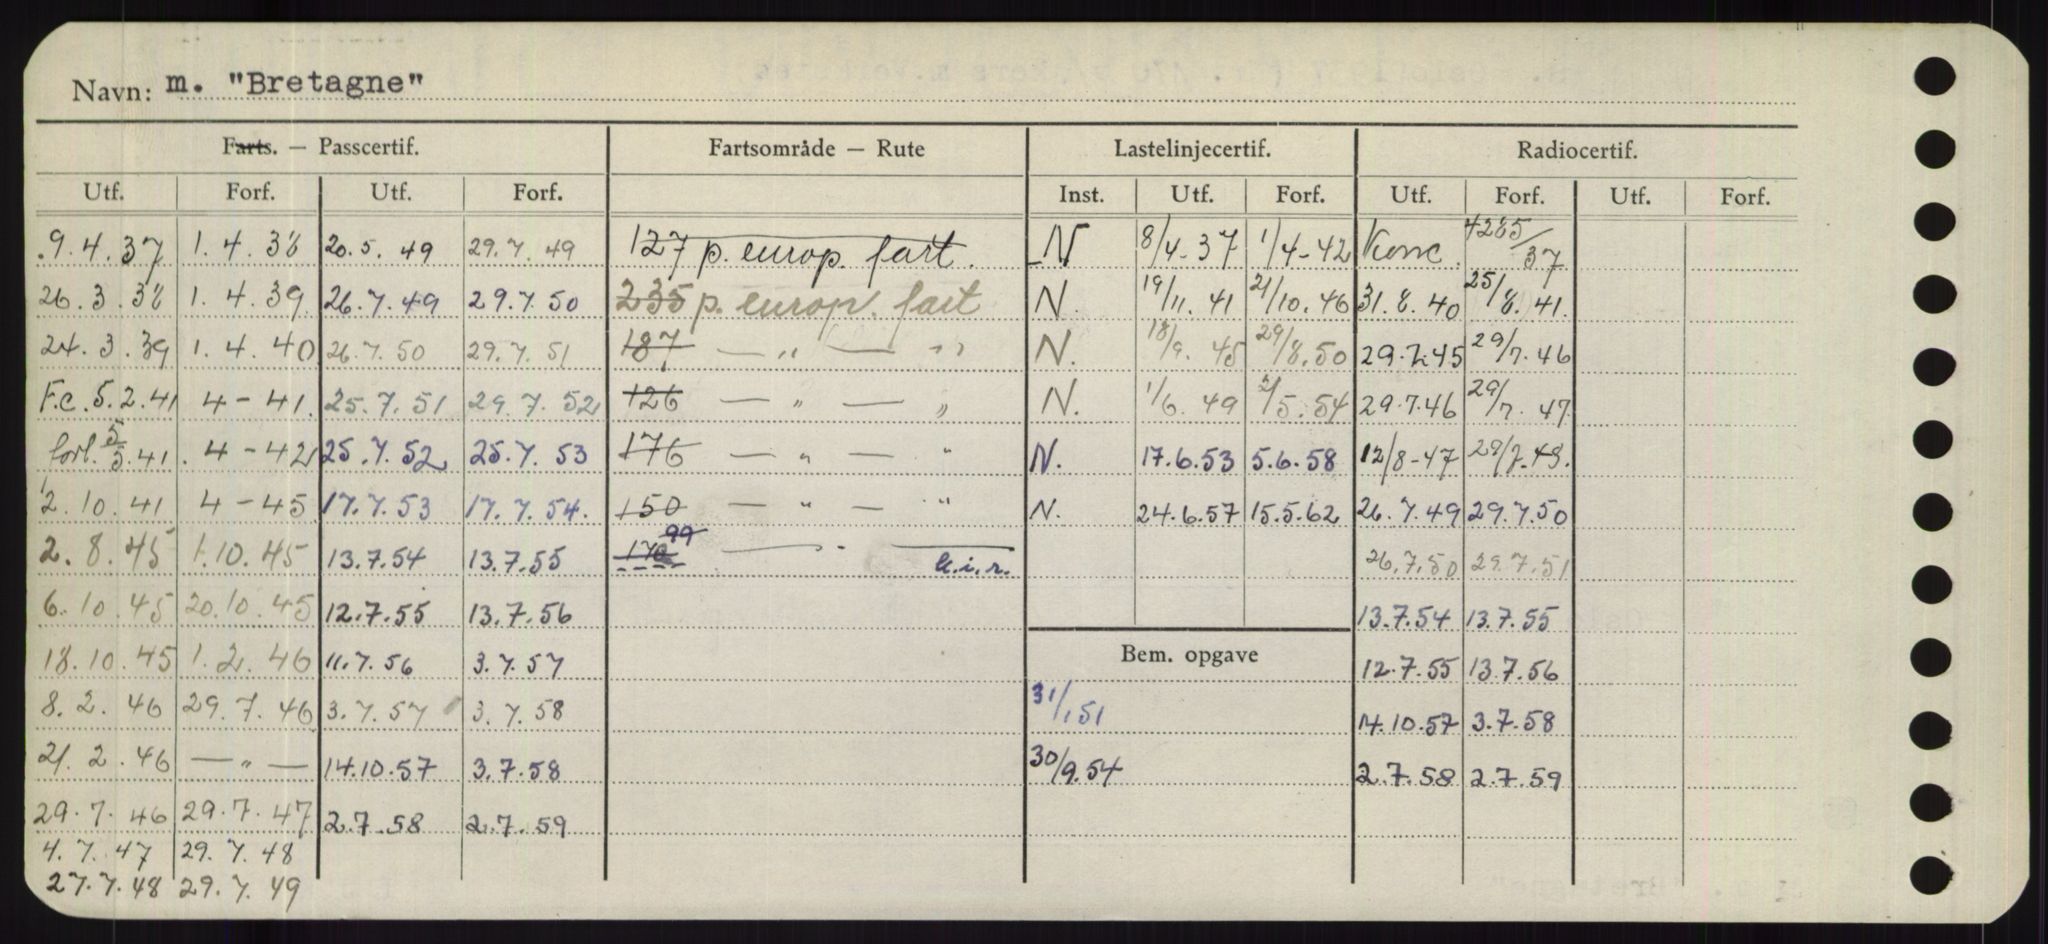 Navn: m. "Bretagne"
Farts. — Passcertif. Fartsområde — Rute Lastelinjecertif. Radiocertif.
Utf. Forf. Utf. Forf. Inst. Utf. Forf. Utf. Forf. Utf. Forf.
9.4.37 1.4.38 20.5.49 29.7.49 127 p. europ. fart. N 8/4-37 1/4-42 Konc. 4285/37
26.3.38 1.4.39 26.7.49 29.7.50 235 p. europ. fart N. 19/11.41 21/10.46 31.8.40 25/8.41.
24.3.39 1.4.40 26.7.50 29.7.51 187 — " — " N. 18/9.45 29/8.50 29.7.45 29/7.46
F.c. 5.2.41 4-41. 25.7.51 29.7.52 126 — " — " N. 1/6.49 2/5.54 29.7.46 29/7.47
forl. 5/5.41. 4-42 25.7.52 25.7.53 176 — " — " N. 17.6.53 5.6.58 12/8-47 29/7.49.
2.10.41 4-45 17.7.53 17.7.54. 150 — " — " N. 24.6.57 15.5.62 26.7.49 29.7.50
2.8.45 1.10.45 13.7.54 13.7.55 170 99 — " — k.i.r. 26.7.50 29.7.51
6.10.45 20.10.45 12.7.55 13.7.56 13.7.54 13.7.55
18.10.45 1.2.46 11.7.56 3.7.57 Bem. opgave 12.7.55 13.7.56
8.2.46 29.7.46 3.7.57 3.7.58 31/1.51 14.10.57 3.7.58
21.2.46 — " — 14.10.57 3.7.58 30/9.54 2.7.58 2.7.59
29.7.46 29.7.47 2.7.58 2.7.59
4.7.47 29.7.48
27.7.48 29.7.49